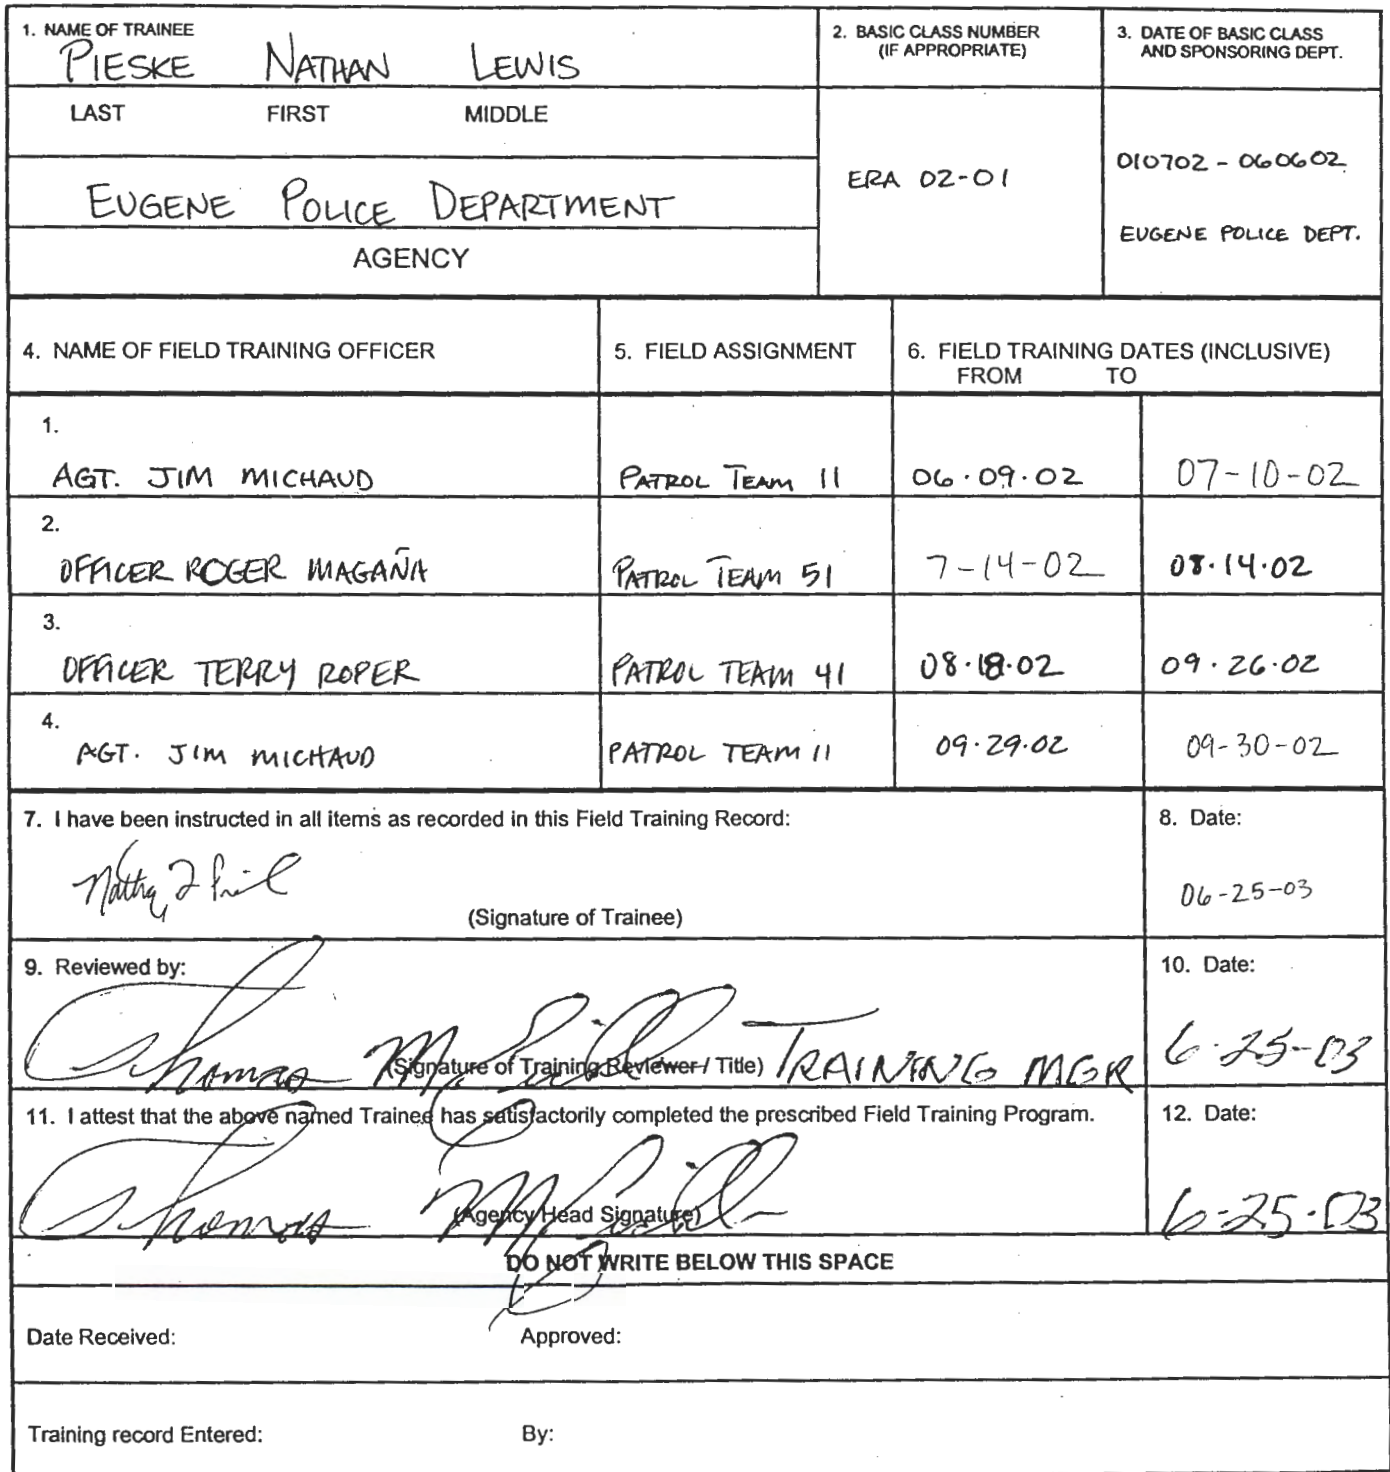 1. NAME OF TRAINEE
PIESKE NATHAN LEWIS
LAST FIRST MIDDLE
EUGENE POLICE DEPARTMENT
AGENCY
2. BASIC CLASS NUMBER
(IF APPROPRIATE)
ERA 02-01
3. DATE OF BASIC CLASS
AND SPONSORING DEPT.
010702 - 060602
EUGENE POLICE DEPT.
4. NAME OF FIELD TRAINING OFFICER
5. FIELD ASSIGNMENT
6. FIELD TRAINING DATES (INCLUSIVE)
FROM TO
1.
AGT. JIM MICHAUD PATROL TEAM 11 06·09·02 07-10-02
2.
OFFICER ROGER MAGAÑA PATROL TEAM 51 7-14-02 08·14·02
3.
OFFICER TERRY ROPER PATROL TEAM 41 08·18·02 09·26·02
4.
AGT. JIM MICHAUD PATROL TEAM 11 09·29·02 09-30-02
7. I have been instructed in all items as recorded in this Field Training Record:
(Signature of Trainee)
8. Date:
06-25-03
9. Reviewed by:
Thomas
(Signature of Training Reviewer / Title) TRAINING MGR
10. Date:
6-25-03
11. I attest that the above named Trainee has satisfactorily completed the prescribed Field Training Program.
Thomas
(Agency Head Signature)
12. Date:
6-25-03
DO NOT WRITE BELOW THIS SPACE
Date Received: Approved:
Training record Entered: By: